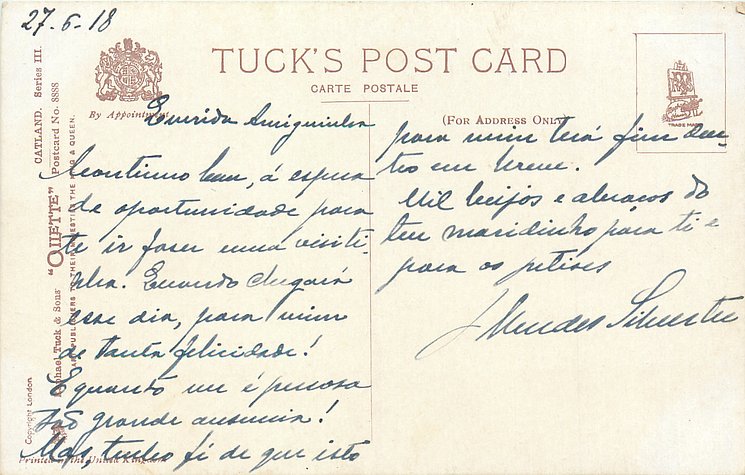 27-6-18
TUCK'S POST CARD
CARTE POSTALE
By Appointment
(FOR ADDRESS ONLY)
TRADE MARK
CATLAND. Series III.
Postcard No. 8888
Raphael Tuck & Sons' "OILETTE"
ART PUBLISHERS TO THEIR MAJESTIES THE KING & QUEEN.
Copyright London
Printed in the United Kingdom
Querida Amiguinha
Continuo bem, á espera
de oportunidade para
te ir faser uma visiti-
nha. Quando chegará
esse dia, para mim
de tanta felicidade!
E quanto me é penosa
tão grande ausencia!
Mas tenho fé de que isto
para mim terá fim den-
tro em breve.
Mil beijos e abraços do
teu maridinho para ti e
para os petises
J Mendes Silvestre